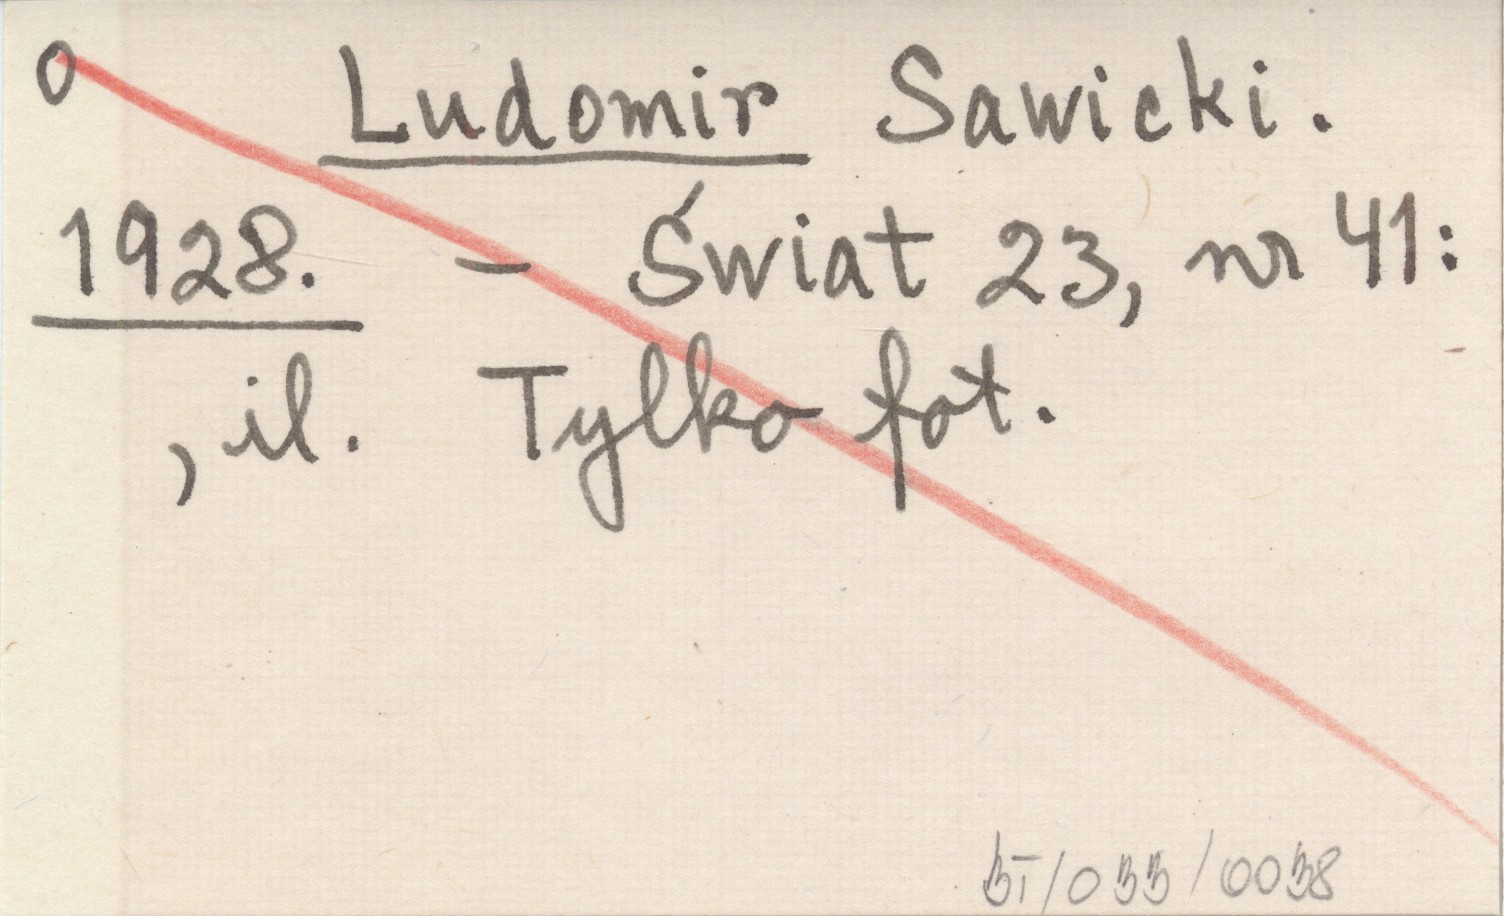 O Ludomir Sawicki.
1928. – Świat 23, nr 41:
, il. Tylko fot.